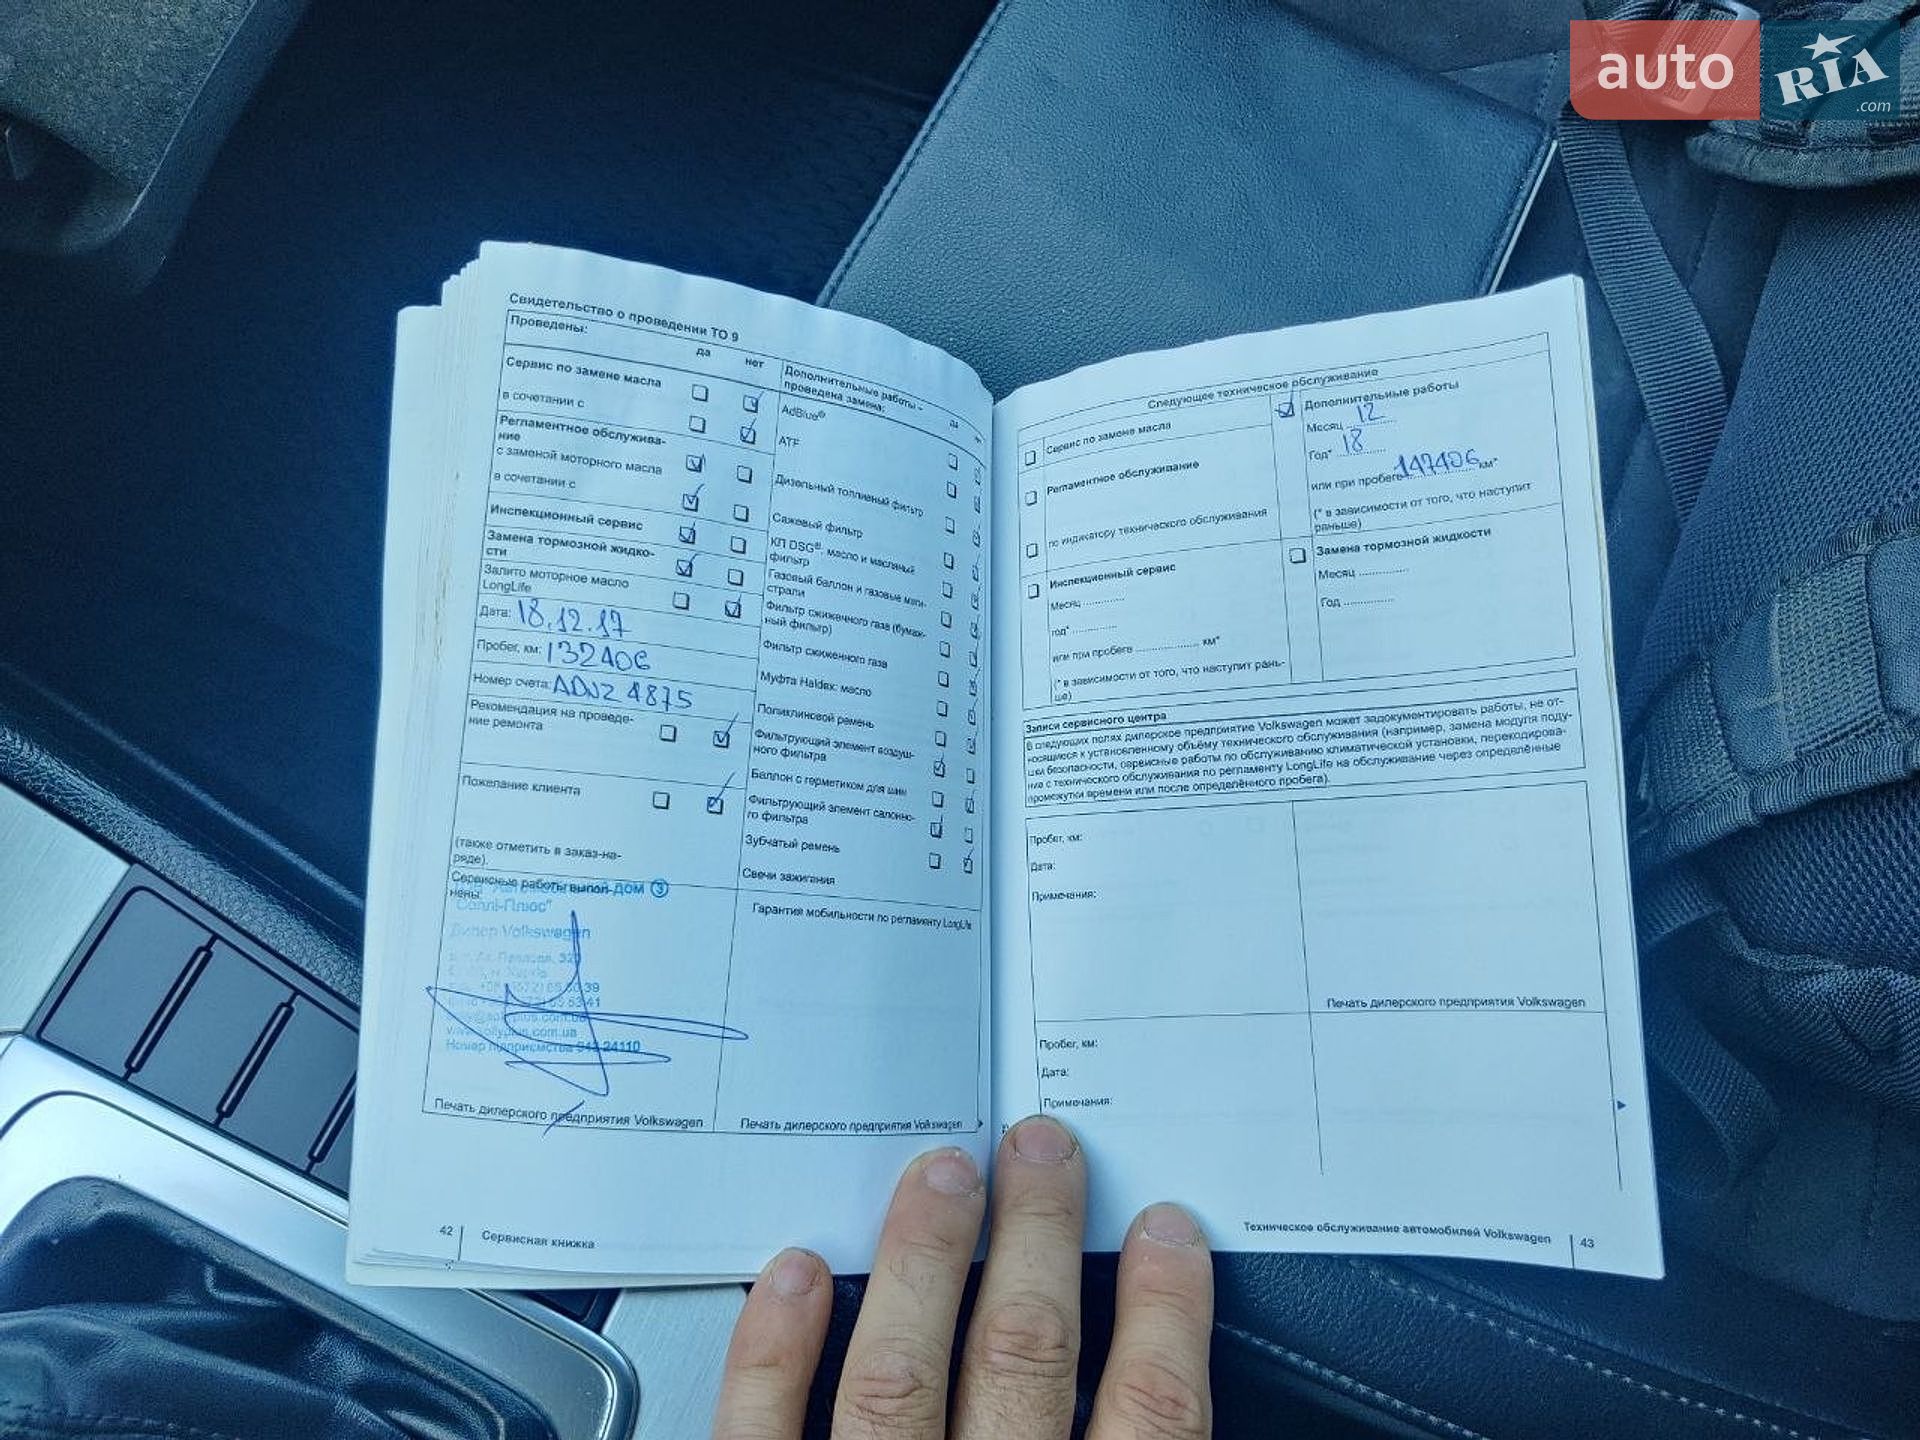 auto RIA.com
Свидетельство о проведении ТО 9
Проведены:
да нет
Сервис по замене масла
в сочетании с
Регламентное обслужива-
ние
с заменой моторного масла
в сочетании с
Инспекционный сервис
Замена тормозной жидко-
сти
Залито моторное масло
LongLife
Дата: 18.12.17
Пробег, км: 132406
Номер счета: ADJ2 4875
Рекомендация на проведе-
ние ремонта
Пожелание клиента
(также отметить в заказ-на-
ряде).
Сервисные работы выпол-
нены:
ДОМ 3
"Солли-Плюс"
Дилер Volkswagen
www.sollyplus.com.ua
Номер підприємства 943 24110
Печать дилерского предприятия Volkswagen
Дополнительные работы –
проведена замена:
да нет
AdBlue®
ATF
Дизельный топливный фильтр
Сажевый фильтр
КП DSG®: масло и масляный
фильтр
Газовый баллон и газовые маги-
страли
Фильтр сжиженного газа (бумаж-
ный фильтр)
Фильтр сжиженного газа
Муфта Haldex: масло
Поликлиновой ремень
Фильтрующий элемент воздуш-
ного фильтра
Баллон с герметиком для шин
Фильтрующий элемент салонно-
го фильтра
Зубчатый ремень
Свечи зажигания
Гарантия мобильности по регламенту LongLife
Печать дилерского предприятия Volkswagen
42 Сервисная книжка
Следующее техническое обслуживание
Сервис по замене масла
Регламентное обслуживание
по индикатору технического обслуживания
Инспекционный сервис
Месяц ............
год* ............
или при пробеге .................. км*
(* в зависимости от того, что наступит рань-
ше)
Дополнительные работы
Месяц 12
Год* 18
или при пробеге 147406 км*
(* в зависимости от того, что наступит
раньше)
Замена тормозной жидкости
Месяц ..............
Год ..............
Записи сервисного центра
В следующих полях дилерское предприятие Volkswagen может задокументировать работы, не от-
носящиеся к установленному объёму технического обслуживания (например, замена модуля поду-
шки безопасности, сервисные работы по обслуживанию климатической установки, перекодирова-
ние с технического обслуживания по регламенту LongLife на обслуживание через определённые
промежутки времени или после определённого пробега).
Пробег, км:
Дата:
Примечания:
Печать дилерского предприятия Volkswagen
Пробег, км:
Дата:
Примечания:
Техническое обслуживание автомобилей Volkswagen 43